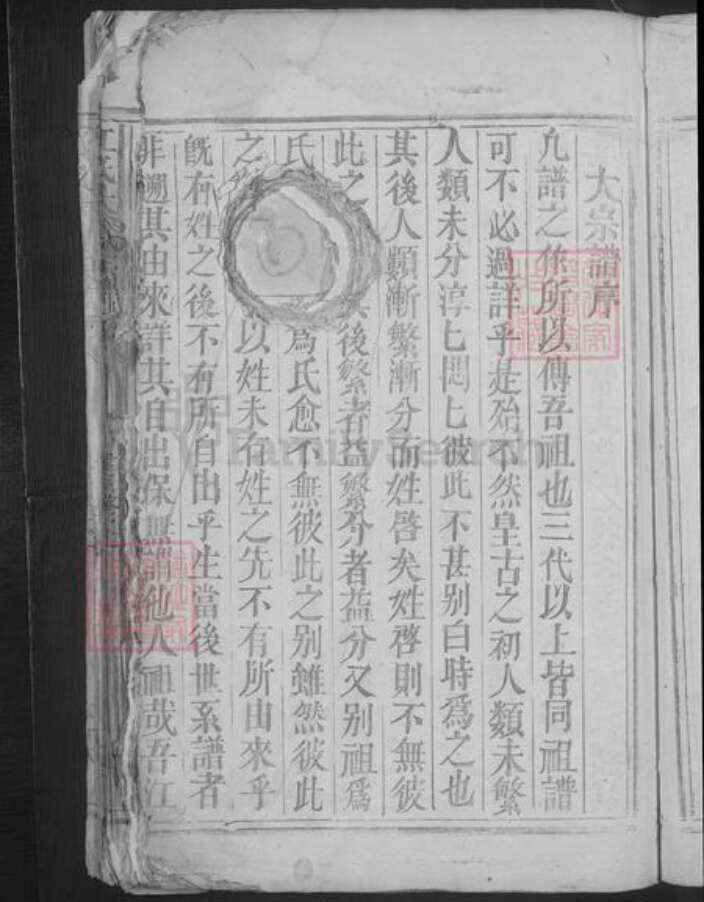 大宗譜序
凢譜之作所以傳吾祖也三代以上皆同祖譜
可不必過詳乎是殆不然皇古之初人類未繁
人類未分淳匕悶匕彼此不甚别白時爲之也
其後人類漸繁漸分而姓啓矣姓啓則不無彼
此之 其後繁者益繁分者益分又别祖爲
氏 爲氏愈不無彼此之别雖然彼此
之 以姓未有姓之先不有所由來乎
旣有姓之後不有所自出乎生當後世系譜者
非遡其由來詳其自出保無謂他人祖哉吾江
FamilySearch